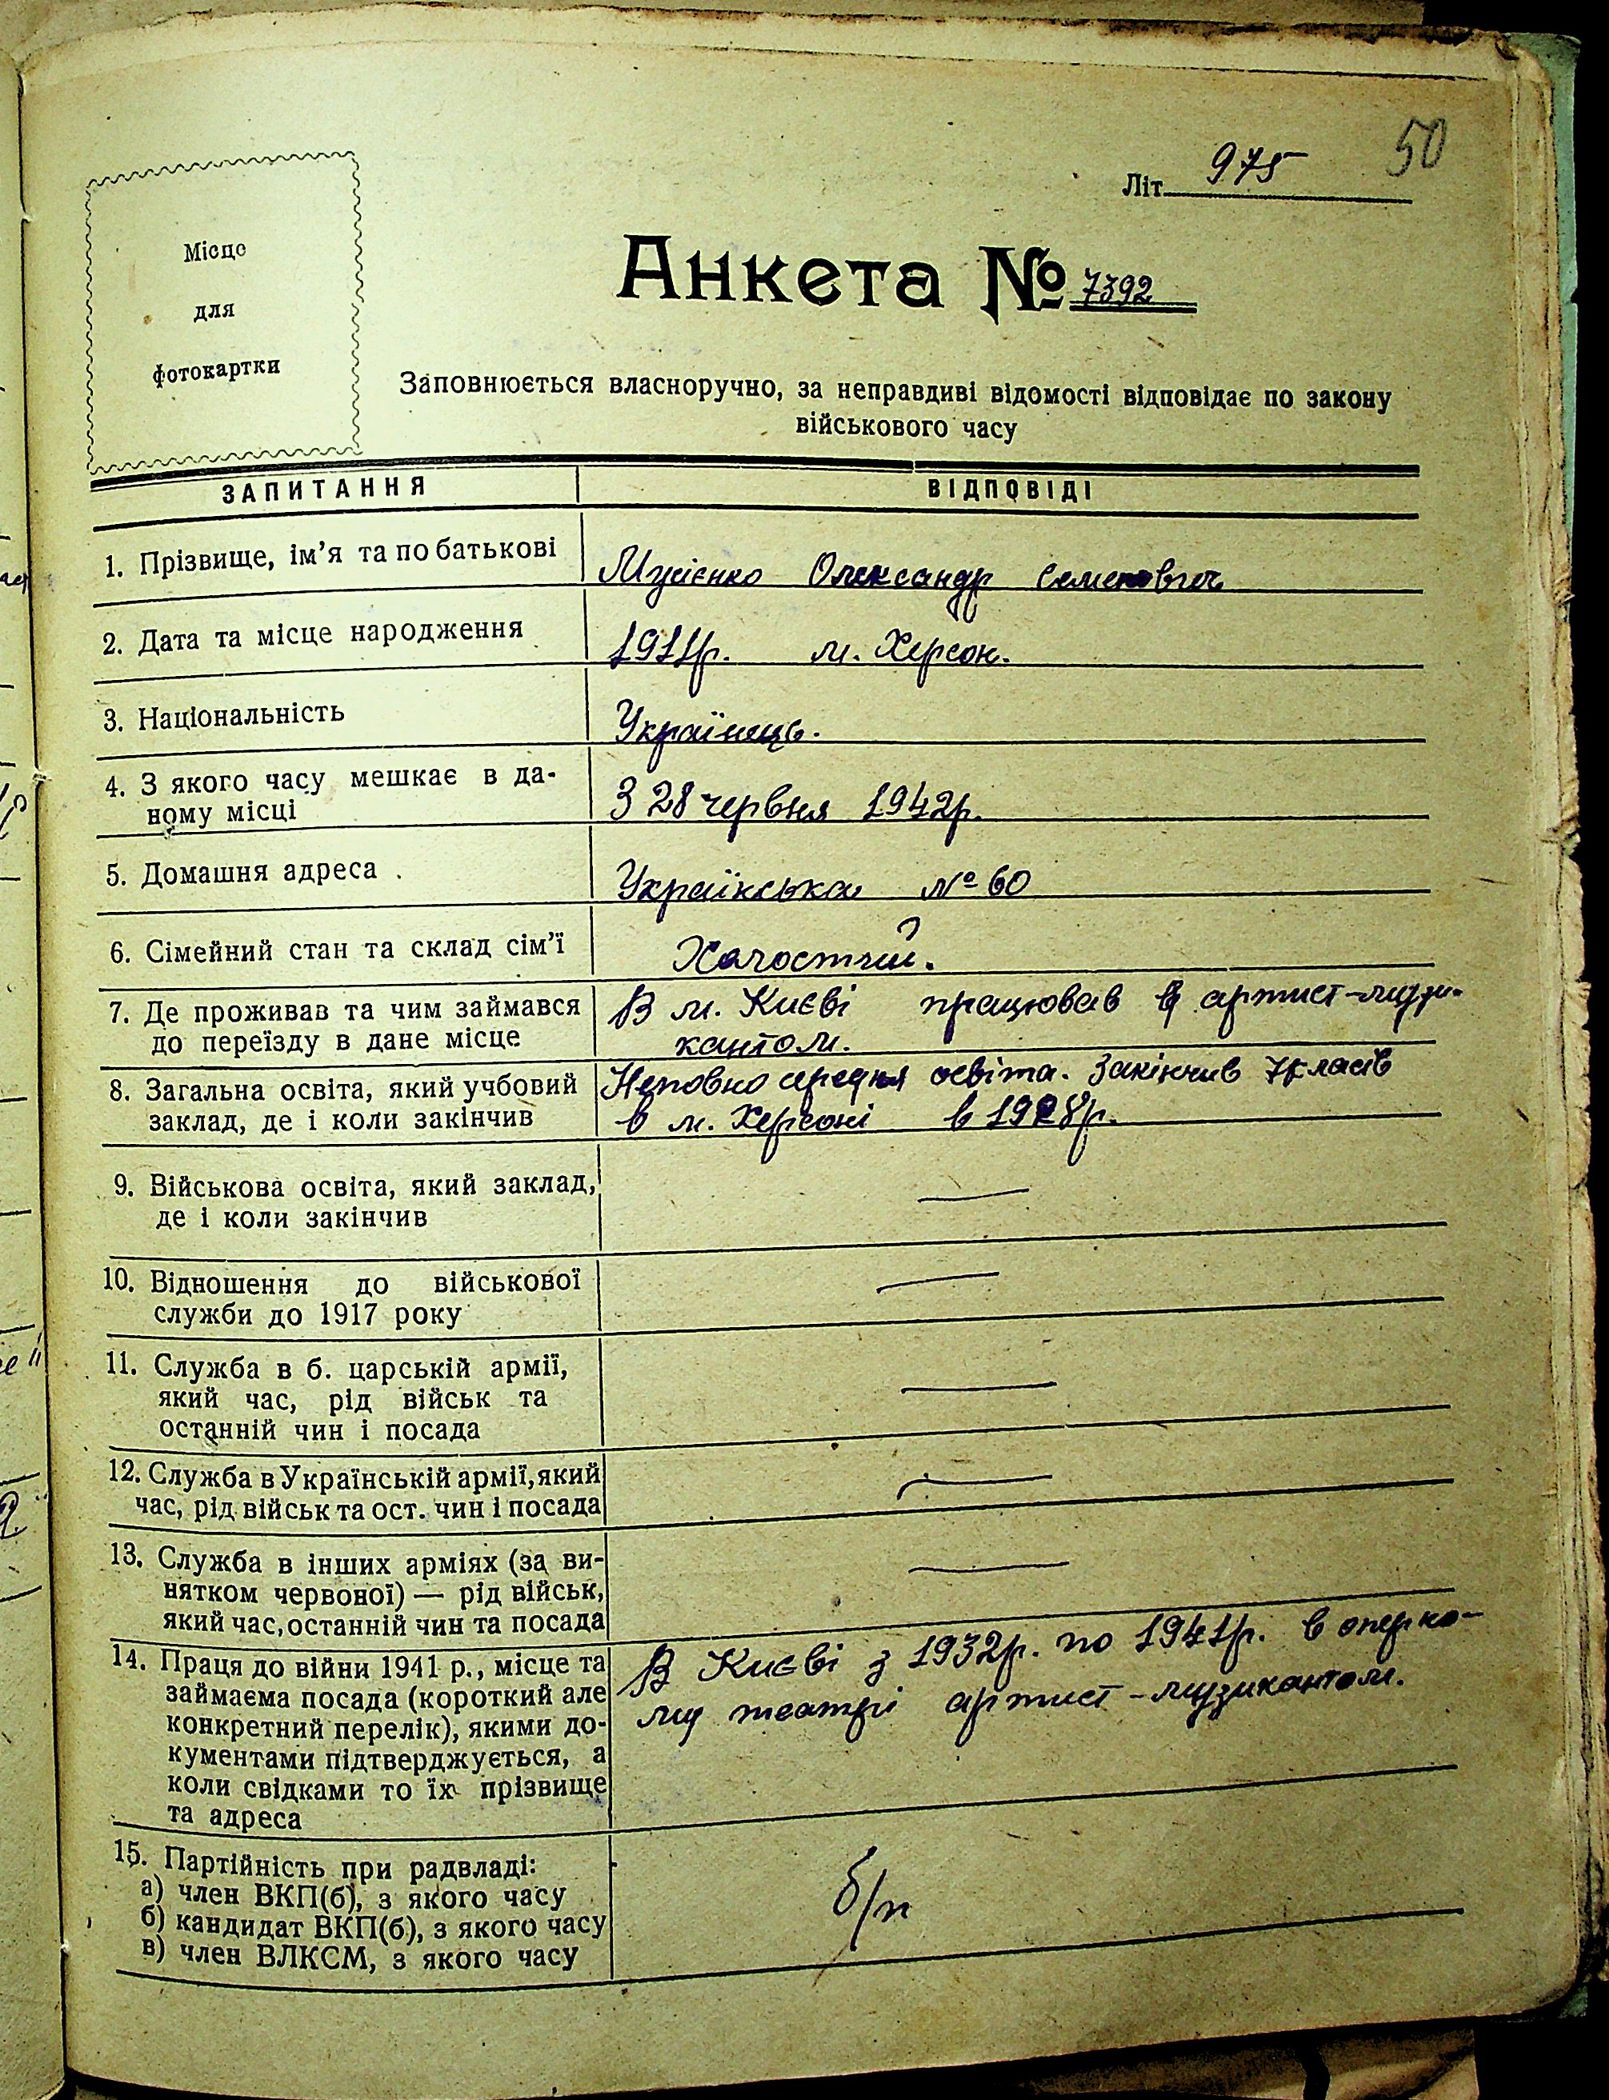 50
Літ. 975
Місце
для
фотокартки
Анкета № 7392
Заповнюється власноручно, за неправдиві відомості відповідає по закону
військового часу
ЗАПИТАННЯ ВІДПОВІДІ
1. Прізвище, ім'я та по батькові Мусієнко Олександр Семенович
2. Дата та місце народження 1911р. м. Херсон.
3. Національність Українець.
4. З якого часу мешкає в да-
ному місці З 28 червня 1942р.
5. Домашня адреса Українська № 60
6. Сімейний стан та склад сім'ї Холостий.
7. Де проживав та чим займався В м. Києві працював в артист-музи-
до переїзду в дане місце кантом.
8. Загальна освіта, який учбовий Неповно середня освіта. Закінчив 7 класів
заклад, де і коли закінчив в м. Херсоні в 1928р.
9. Військова освіта, який заклад, —
де і коли закінчив
10. Відношення до військової —
служби до 1917 року
11. Служба в б. царській армії,
який час, рід військ та —
останній чин і посада
12. Служба в Українській армії, який —
час, рід військ та ост. чин і посада
13. Служба в інших арміях (за ви- —
нятком червоної) — рід військ,
який час, останній чин та посада
14. Праця до війни 1941 р., місце та В Києві з 1932р. по 1941р. в оперно-
займаєма посада (короткий але му театрі артист-музикантом.
конкретний перелік), якими до-
кументами підтверджується, а
коли свідками то їх прізвище
та адреса
15. Партійність при радвладі:
а) член ВКП(б), з якого часу б/п
б) кандидат ВКП(б), з якого часу
в) член ВЛКСМ, з якого часу